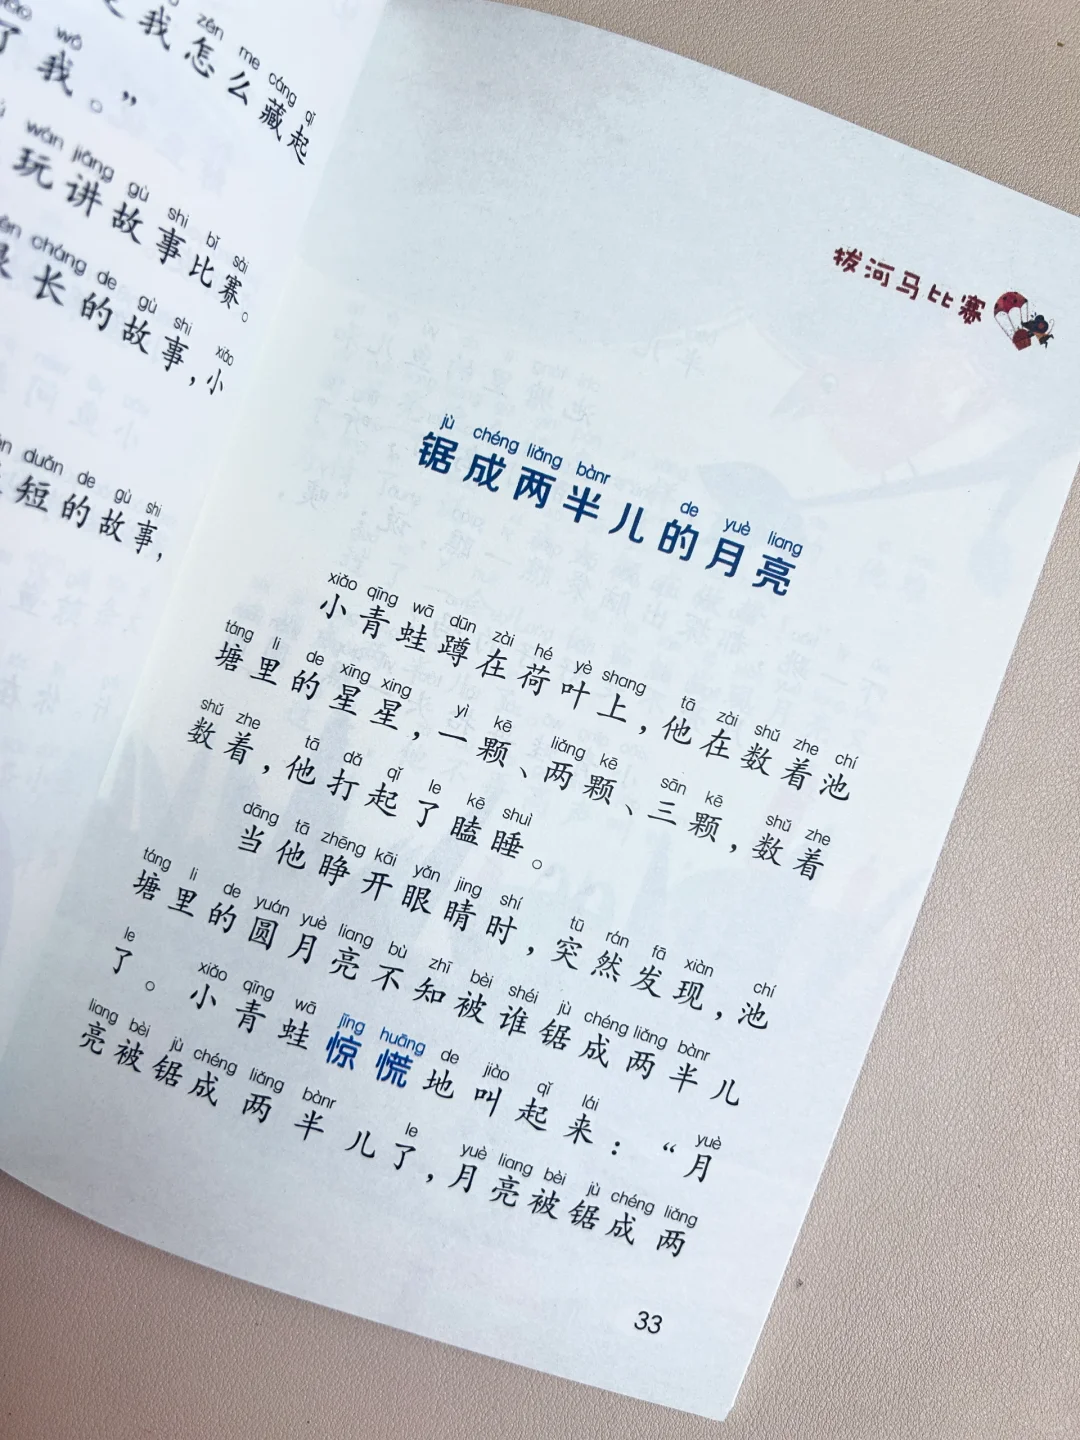 我怎么藏起
了我。”
玩讲故事比赛。
长的故事，小
短的故事，
zěn me cáng qǐ
wǒ
wán jiǎng gù shi bǐ sài
cháng de gù shi xiǎo
duǎn de gù shi
拔河马比赛
jù chéng liǎng bànr de yuè liang
锯成两半儿的月亮
xiǎo qīng wā dūn zài hé yè shang tā zài shǔ zhe chí
小青蛙蹲在荷叶上，他在数着池
táng li de xīng xing yì kē liǎng kē sān kē shǔ zhe
塘里的星星，一颗、两颗、三颗，数着
shǔ zhe tā dǎ qǐ le kē shuì
数着，他打起了瞌睡。
dāng tā zhēng kāi yǎn jing shí tū rán fā xiàn chí
当他睁开眼睛时，突然发现，池
táng li de yuán yuè liang bù zhī bèi shéi jù chéng liǎng bànr
塘里的圆月亮不知被谁锯成两半儿
le xiǎo qīng wā jīng huāng de jiào qǐ lái yuè
了。小青蛙惊慌地叫起来：“月
liang bèi jù chéng liǎng bànr le yuè liang bèi jù chéng liǎng
亮被锯成两半儿了，月亮被锯成两
33